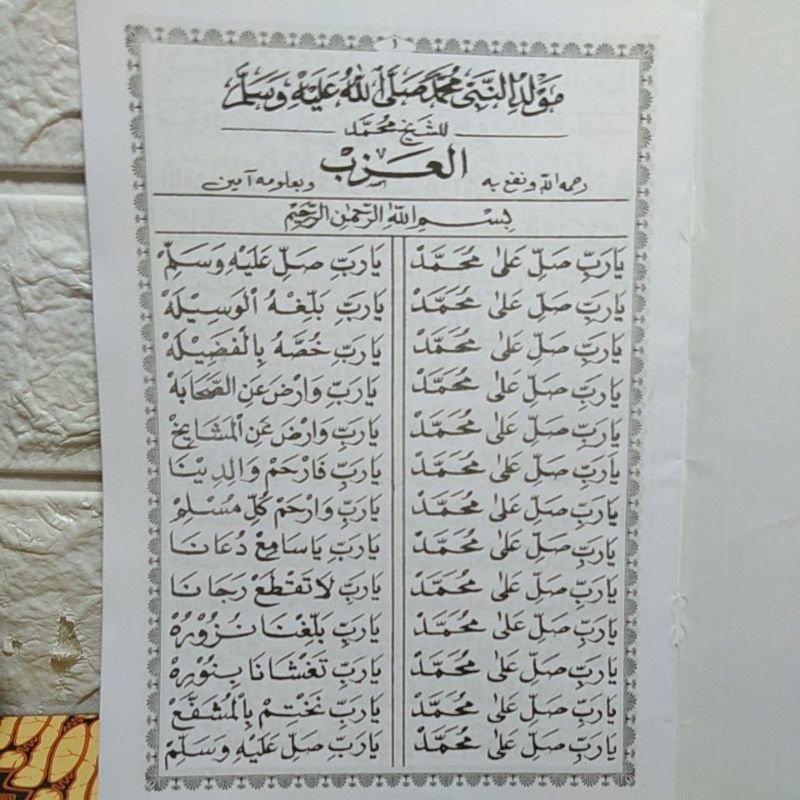 ١
مَوْلِدُ النَّبِيِّ مُحَمَّدٍ صَلَّى اللهُ عَلَيْهِ وَسَلَّمَ
للشيخ محمّد
رحمه الله ونفع به العَزَبْ وبعلومه آمين
بِسْمِ اللهِ الرَّحْمٰنِ الرَّحِيْمِ
يَارَبِّ صَلِّ عَلىٰ مُحَمَّدْ يَارَبِّ صَلِّ عَلَيْهِ وَسَلِّمْ
يَارَبِّ صَلِّ عَلىٰ مُحَمَّدْ يَارَبِّ بَلِّغْهُ الْوَسِيْلَهْ
يَارَبِّ صَلِّ عَلىٰ مُحَمَّدْ يَارَبِّ خُصَّهُ بِالْفَضِيْلَهْ
يَارَبِّ صَلِّ عَلىٰ مُحَمَّدْ يَارَبِّ وَارْضَ عَنِ الصَّحَابَهْ
يَارَبِّ صَلِّ عَلىٰ مُحَمَّدْ يَارَبِّ وَارْضَ عَنِ الْمَشَايِخْ
يَارَبِّ صَلِّ عَلىٰ مُحَمَّدْ يَارَبِّ فَارْحَمْ وَالِدِيْنَا
يَارَبِّ صَلِّ عَلىٰ مُحَمَّدْ يَارَبِّ وَارْحَمْ كُلَّ مُسْلِمْ
يَارَبِّ صَلِّ عَلىٰ مُحَمَّدْ يَارَبِّ يَاسَامِعْ دُعَانَا
يَارَبِّ صَلِّ عَلىٰ مُحَمَّدْ يَارَبِّ لَا تَقْطَعْ رَجَانَا
يَارَبِّ صَلِّ عَلىٰ مُحَمَّدْ يَارَبِّ بَلِّغْنَا نَزُوْرُهْ
يَارَبِّ صَلِّ عَلىٰ مُحَمَّدْ يَارَبِّ تَغْشَانَا بِنُوْرِهْ
يَارَبِّ صَلِّ عَلىٰ مُحَمَّدْ يَارَبِّ نَخْتِمْ بِالْمُشَفَّعْ
يَارَبِّ صَلِّ عَلىٰ مُحَمَّدْ يَارَبِّ صَلِّ عَلَيْهِ وَسَلِّمْ